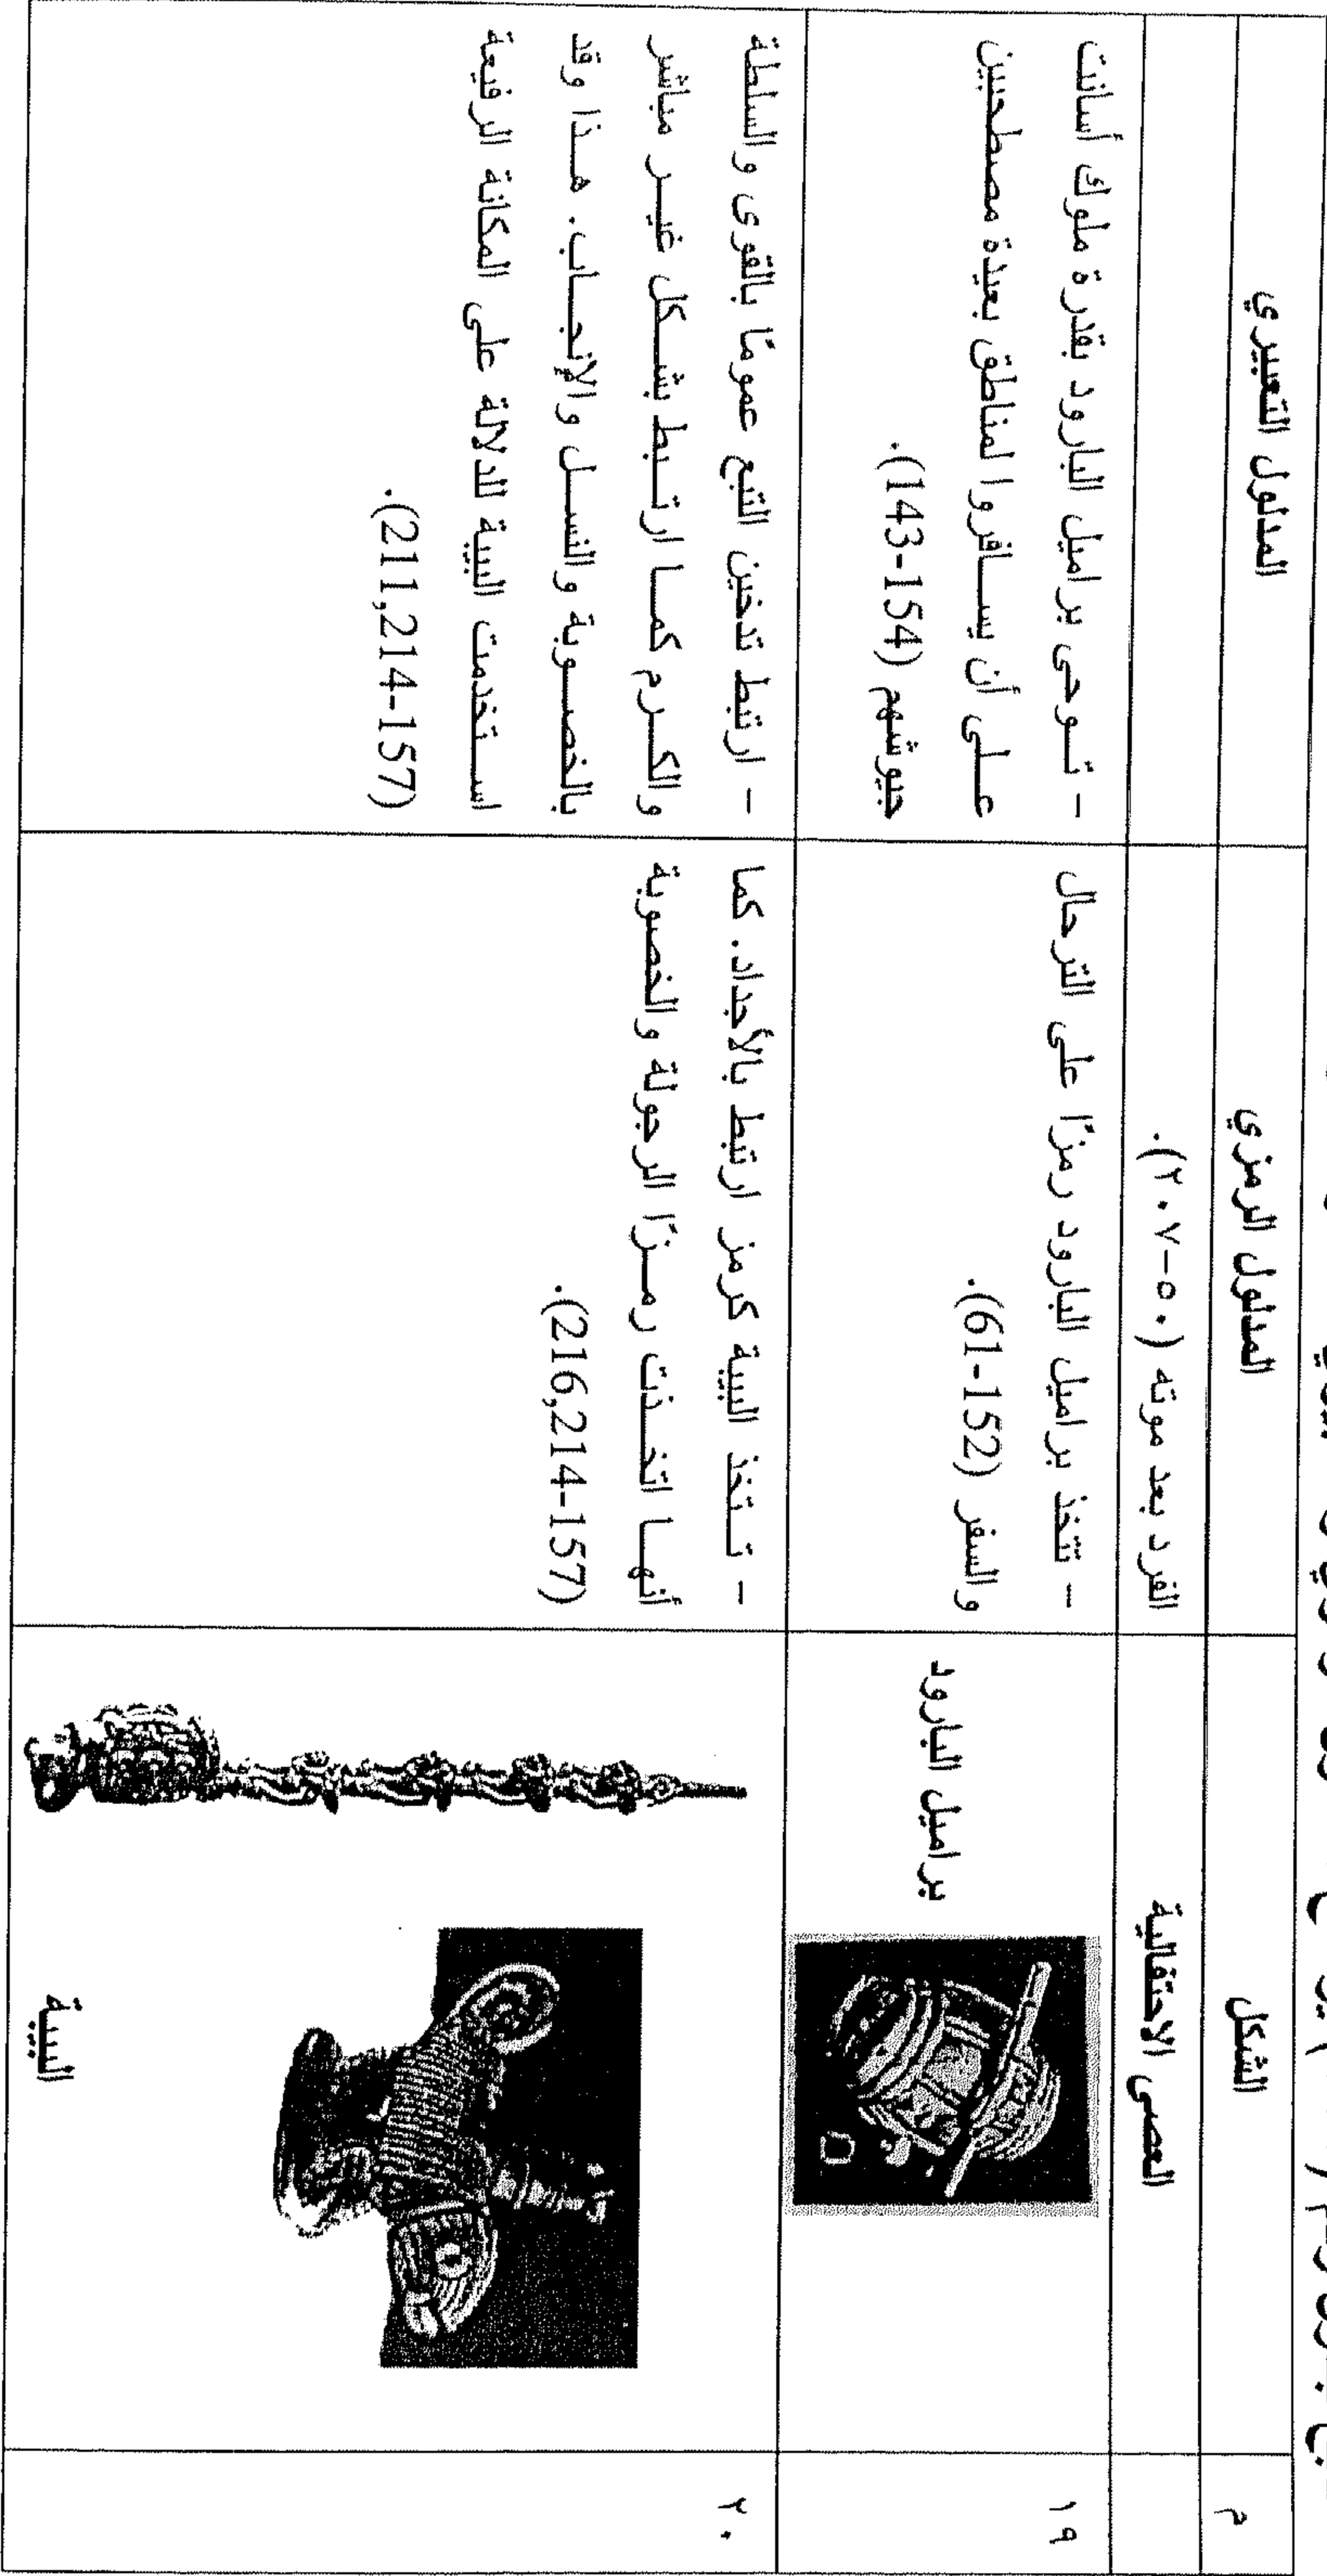 م
الشكل
المدلول الرمزي
المدلول التعبيري
العصى الاحتفالية
الفرد بعد موته (٥٠-٢٠٧).
١٩
براميل البارود
- تتخذ براميل البارود رمزًا على الترحال
والسفر (152-61).
- تـوحى براميل البارود بقدرة ملوك أسانت
عـلـى أن يسـافروا لمناطق بعيدة مصطحبين
جيوشهم (154-143).
٢٠
البيبة
- تـتخذ البيبة كرمز ارتبط بالأجداد. كما
أنهـا اتخـذت رمـزًا الرجولة والخصوبة
(157-216,214).
- ارتبط تدخين التبع عمومًا بالقوى والسلطة
والكـرم كمـا ارتـبط بشـكل غيـر مباشر
بالخصـوبة والنسـل والإنجـاب. هـذا وقد
اسـتخدمت البيبة للدلالة على المكانة الرفيعة
(157-211,214).